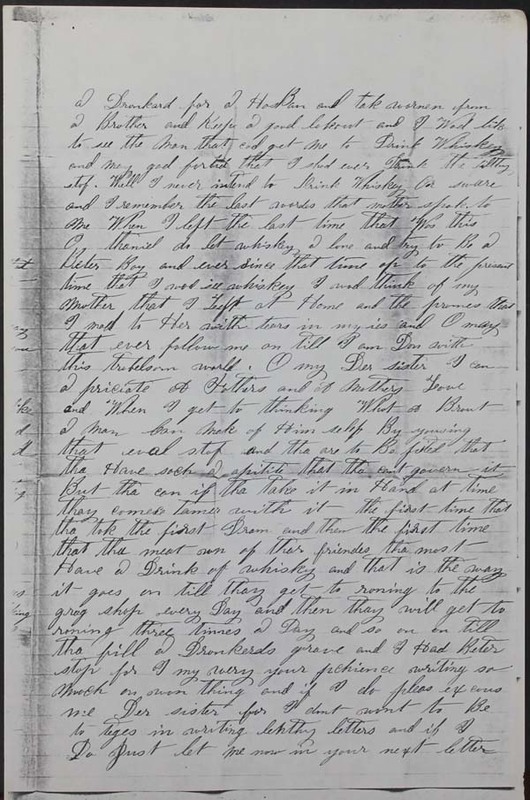 a Dronkard for a HosBan and tak wornen from
a Brother and Keep a good lokout and I Wod like
to see the Man that cod get me to Drink Whiskey
and may god forbid that I shod ever Drink the
stof. Well I never intend to Drink Whiskey Or sware
and I remember the last wordes that mother spok to
Me When I left the last time that Was this
O, thaniel do let whiskey a lone and try to Be a
Beter Boy and ever since that time up to the present
time that I wod see whiskey I wod think of my
Mother that I left at Home and the promes that
I mad to Her with tears in my ies and O may
that ever follow me on till I am Don with
this trobelsom world. O my Der sister I can
a priciate A Fothers and A Mothers Love
and When I get to thinking What a Brout
a man Can mak of Him self By yousing
that evel stof and tha are to Be pited that
tha Have such a apitite that tha cant govern it
But tha can if tha take it in Hand at time
thay comes tamer with it the first time that
tha tok the first Dram and then the first time
that tha meat son of thar friendes tha most
Have a Drink of whisky and that is the way
it goes on till thay get to roning to the
grog shop every Day and then thay will get to
roning three timnes a Day and so on on till
tha fill a Dronkerds grave and I Had Beter
stop for I my wery your pchience writing so
Moch on won thing and if I do pleas excous
me Der sister for I dont wont to Be
to teges in writing lenthy letters and if I
Do Just let me now in your next letter